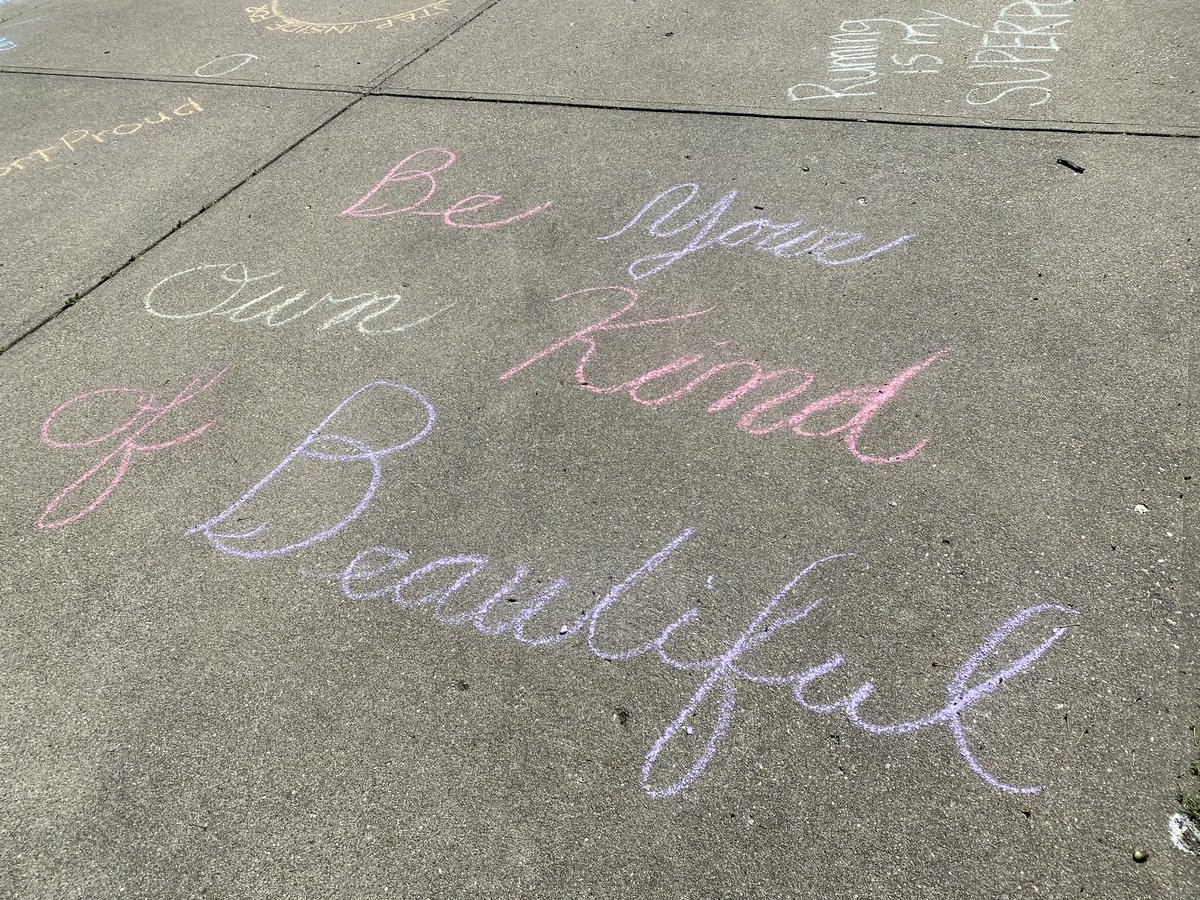 STEP INSIDE
Running
is my
SUPERPO
Proud
Be Your
Own Kind
of Beautiful